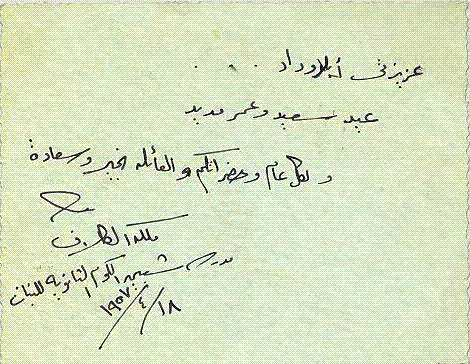 عزيزتي أبلا وداد . . .
عيد سعيد وعمر مديد
وكل عام وحضراتكم والعائلة بخير وسعادة
ملكة
مدرسة شبين الكوم الثانوية للبنات
١٨/٤/١٩٥٧